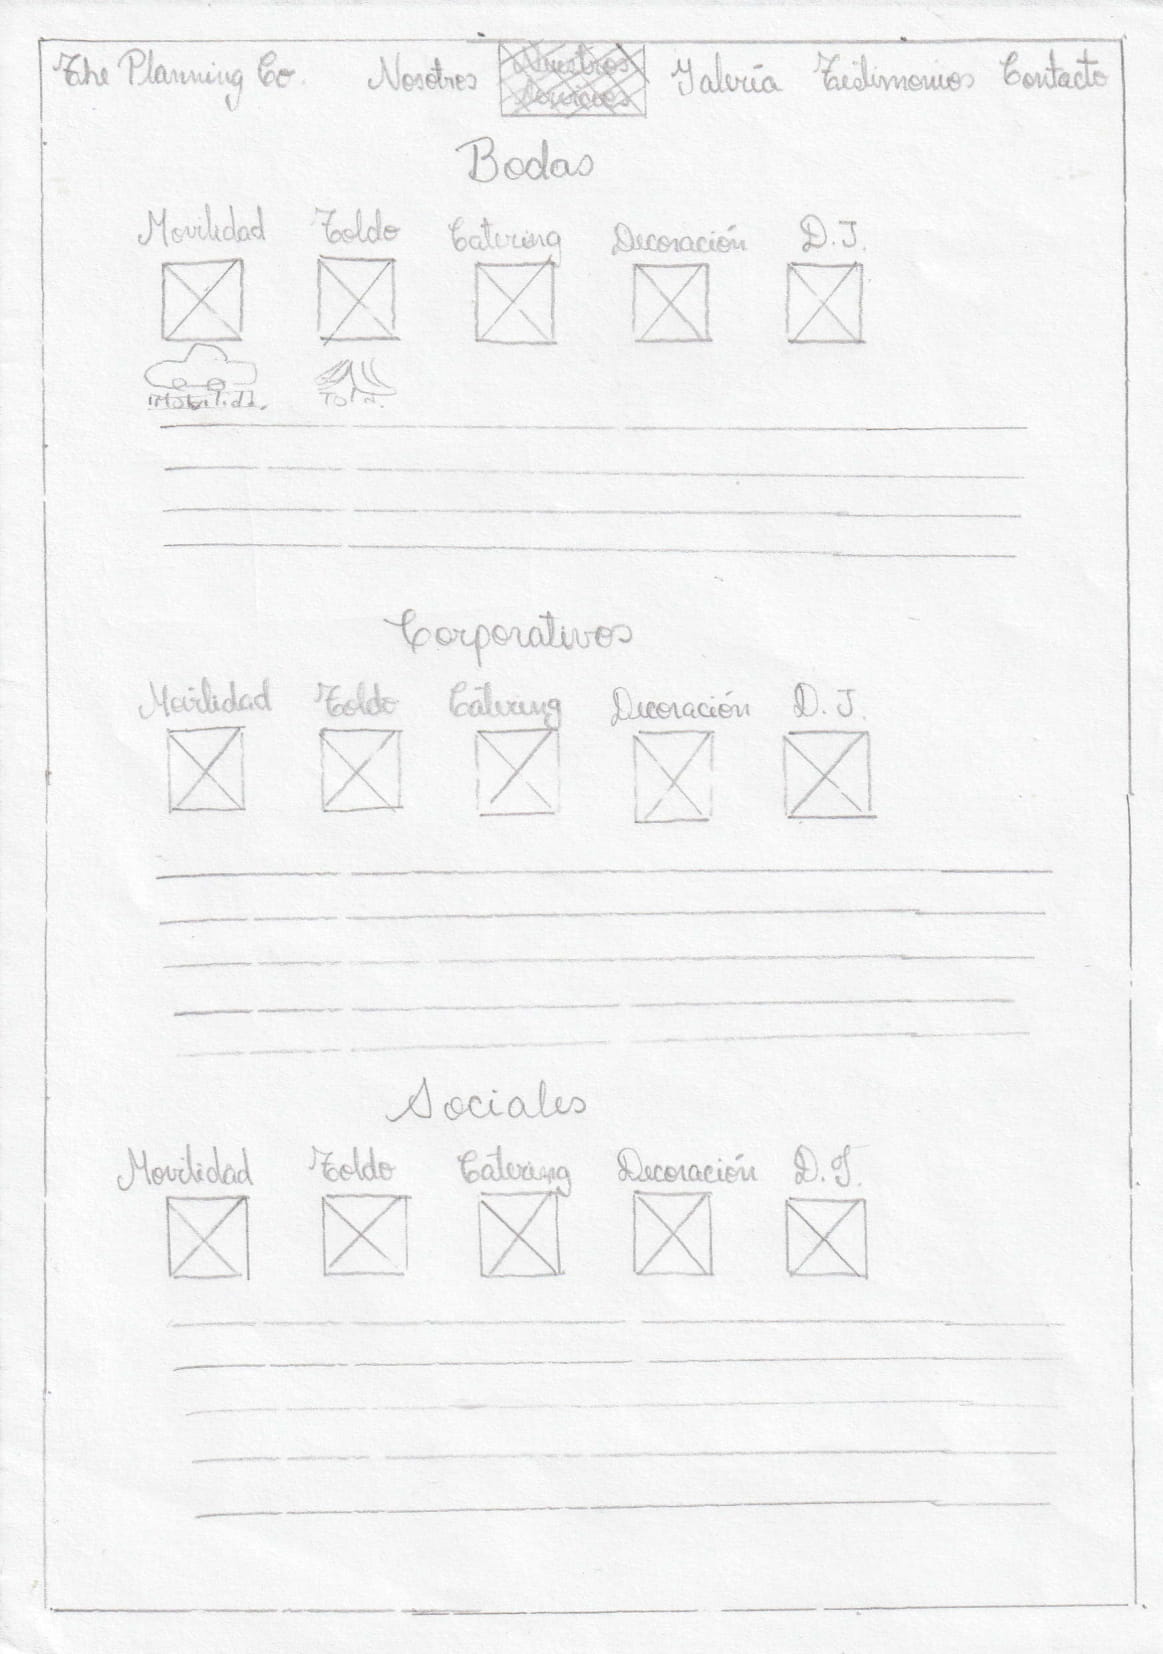 The Planning Co. Nosotros Nuestros Servicios Galería Testimonios Contacto
Bodas
Movilidad Toldo Catering Decoración D.J.
Corporativos
Movilidad Toldo Catering Decoración D.J.
Sociales
Movilidad Toldo Catering Decoración D.J.